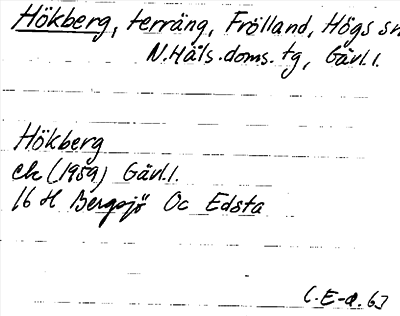 Hökberg, terräng, Frölland, Högs sn
N.Häls.doms.tg, Gävl.l.
Hökberg
ek (1959) Gävl.l.
16 H Bergsjö Oc Edsta
C.E-d. 63